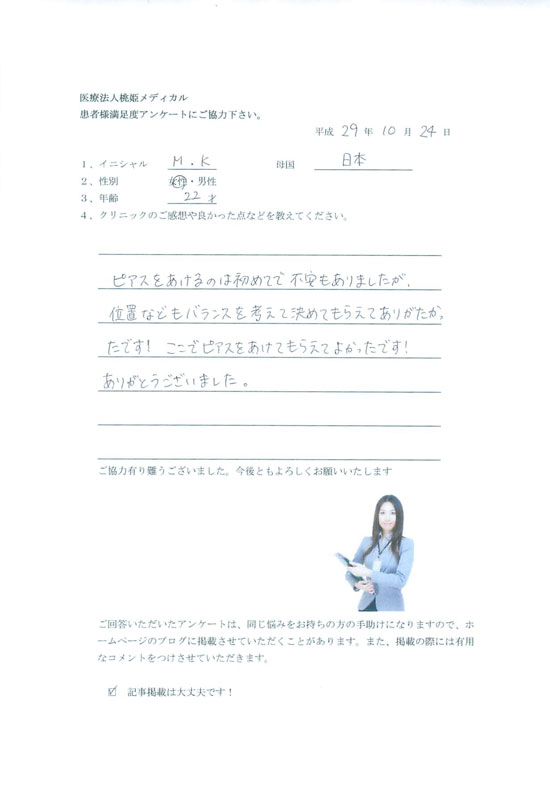 医療法人桃姫メディカル
患者様満足度アンケートにご協力下さい。
平成 29 年 10 月 24 日
1、イニシャル M・K 母国 日本
2、性別 女性・男性
3、年齢 22 才
4、クリニックのご感想や良かった点などを教えてください。
ピアスをあけるのは初めてで不安もありましたが、
位置などもバランスを考えて決めてもらえてありがたかっ
たです! ここでピアスをあけてもらえてよかったです!
ありがとうございました。
ご協力有り難うございました。今後ともよろしくお願いいたします
ご回答いただいたアンケートは、同じ悩みをお持ちの方の手助けになりますので、ホ
ームページのブログに掲載させていただくことがあります。また、掲載の際には有用
なコメントをつけさせていただきます。
☑ 記事掲載は大丈夫です！